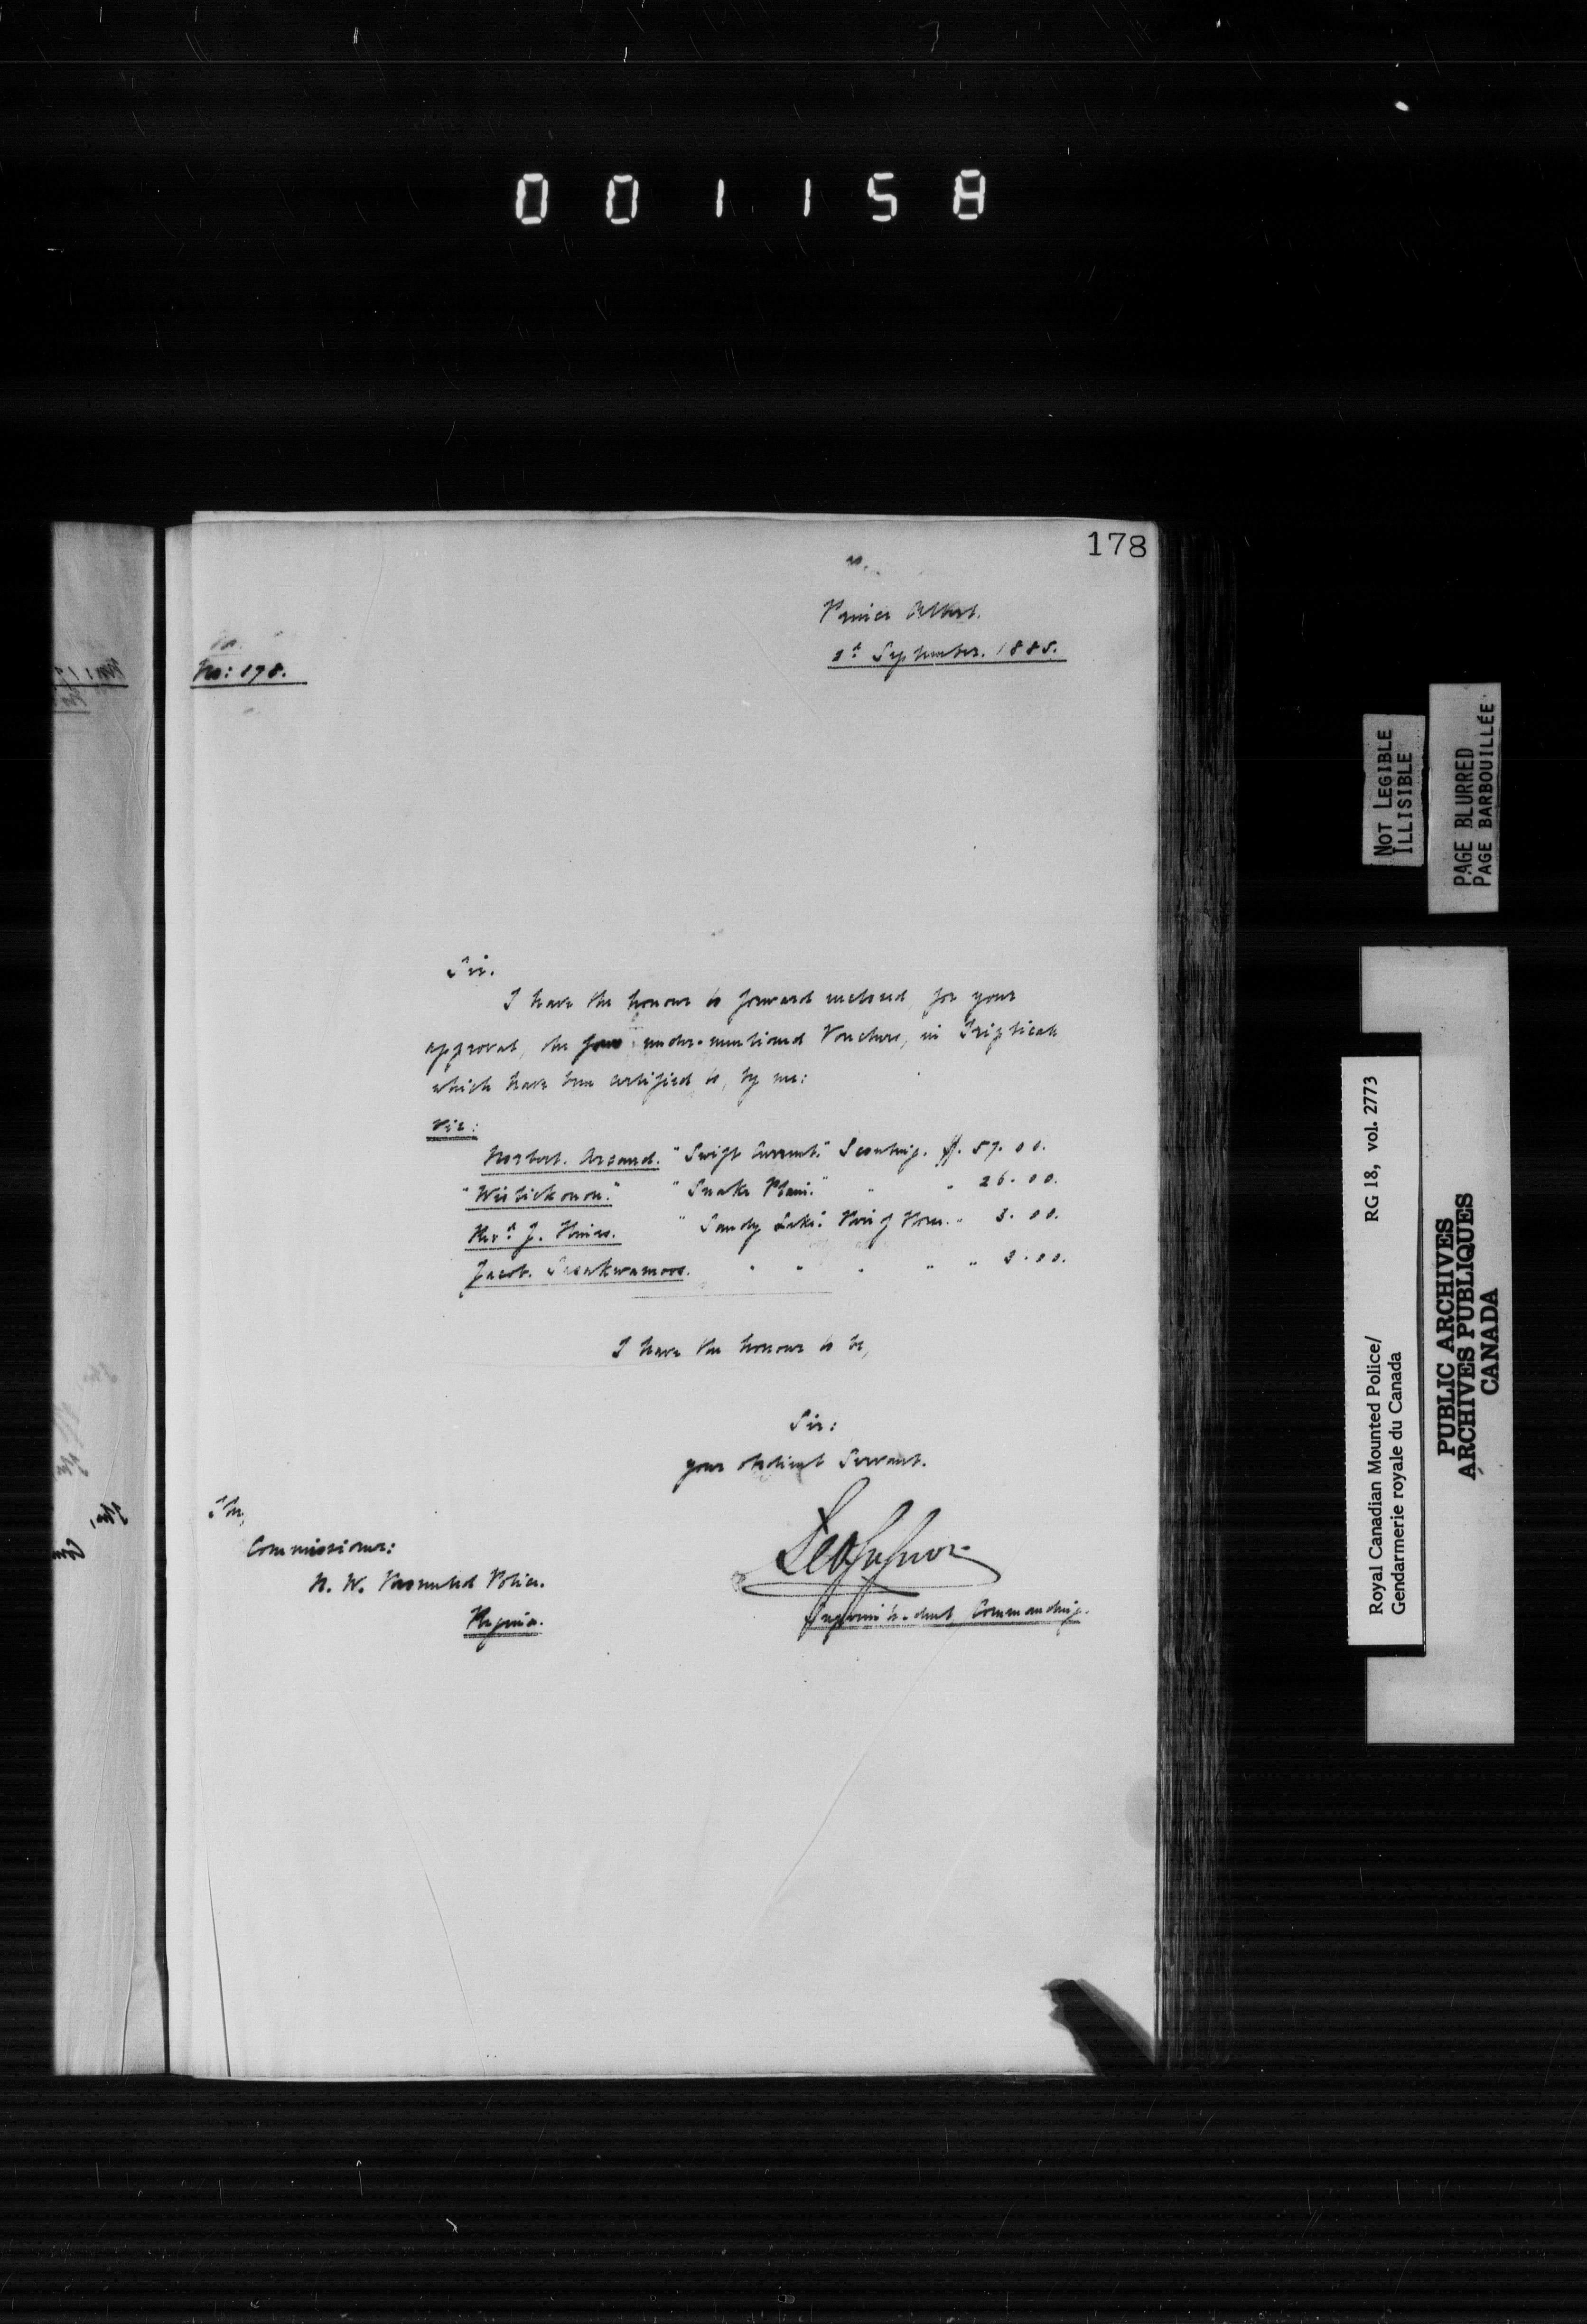 001158
178
Prince Albert.
September. 1885.
No: 178.
Sir.
I have the honour to forward enclosed, for your
approval, the four under-mentioned Vouchers, in Triplicate
which have been certified to, by me:
Viz:
Norbert. Arcand. "Swift Current." Scouting. $. 57. 00.
" "Snake Plain." " " 26. 00.
Revd J. Hines. "Sandy Lake." Hire of Horse. " 3. 00.
Jacob. " " " " " 3. 00.
I have the honour to be,
Sir:
your obedient Servant.
The,
Commissioner:
N. W. Mounted Police.
Regina.
Superintendent Commanding.
NOT LEGIBLE
ILLISIBLE
PAGE BLURRED
PAGE BARBOUILLÉE
Royal Canadian Mounted Police/
Gendarmerie royale du Canada
RG 18, vol. 2773
PUBLIC ARCHIVES
ARCHIVES PUBLIQUES
CANADA